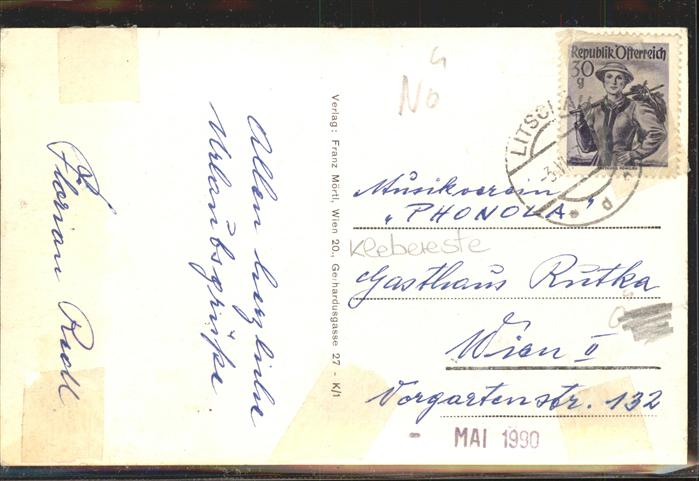 Allen herzliche
Urlaubsgrüße.
Florian
Verlag: Franz Mörtl, Wien 20., Gerhardusgasse 27 - K/1
Nö
Republik Österreich
30
g
LITSCHAU
Musikverein
„PHONOLA“
Klebereste
Gasthaus Rutka
Wien II
Vorgartenstr. 132
- MAI 1990